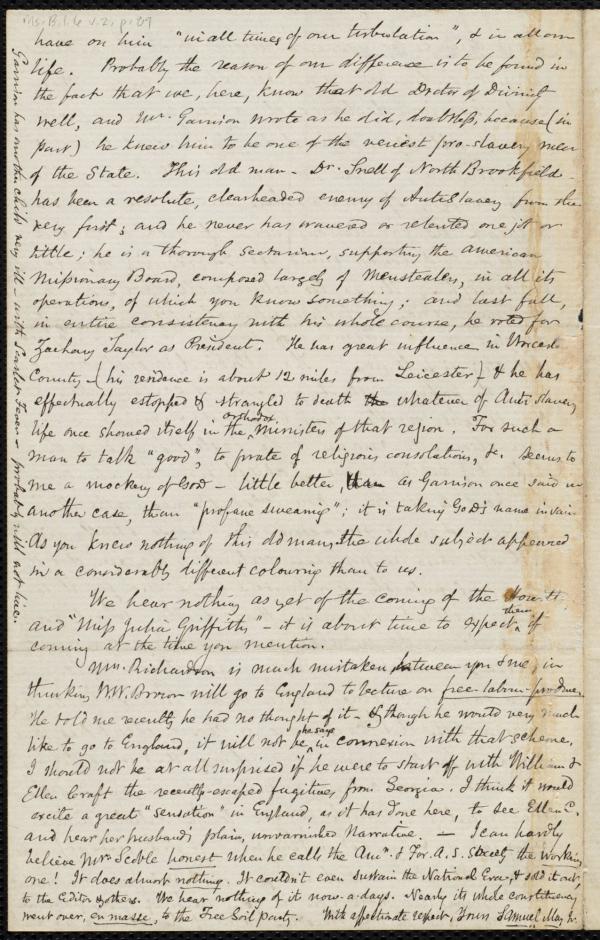 Ms. B. 1. 6 v. 2, p. 09
have on him "in all times of our tribulation", & in all our
life. Probably the reason of our difference is to be found in
the fact that we, here, know that old Doctor of Divinity
well, and Mr. Garrison wrote as he did, doubtless, because (in
part) he knew him to be one of the veriest pro-slavery men
of the State. This old man - Dr. Snell of North Brookfield -
has been a resolute, clearheaded enemy of AntiSlavery from the
very first; and he never has wavered or relented one jot or
tittle; he is a thorough sectarian, supporting the American
Missionary Board, composed largely of Menstealers, in all its
operations, of which you know something; and last fall,
in entire consistency with his whole course, he voted for
Zachary Taylor as President. He has great influence in Worcester
County - (his residence is about 12 miles from Leicester) - & he has
effectually estopped & strangled to death the whatever of Anti-slavery
life once showed itself in the orthodox Ministers of that region. For such a
man to talk "good", to prate of religious consolations, &c. seems to
me a mockery of God - little better, than as Garrison once said in
another case, than "profane swearing"; it is taking God's name in vain
As you knew nothing of this old man, the whole subject appeared
in a considerably different colouring than to us.
We hear nothing as yet of the coming of the
and "Miss Julia Griffiths" - it is about time to expect them, if
coming at the time you mention.
Mrs. Richardson is much mistaken, between you & me, in
thinking W.W. Brown will go to England to lecture on free-labour-produce.
He told me recently he had no thought of it - & though he would very much
like to go to England, it will not be, he says, in connexion with that scheme.
I should not be at all surprised if he were to start off with William &
Ellen Craft the recently-escaped fugitives from Georgia. I think it would
excite a great "sensation" in England, as it has done here, to see Ellen C.
and hear her husband's plain, unvarnished Narrative. - I can hardly
believe Mr. Scoble honest when he calls the Amn. & For. A. S. Society the working
one! It does almost nothing. It couldn't even sustain the National Era, & sold it out,
to the Editor & others. We hear nothing of it now-a-days. Nearly its whole constituency
went over, en masse, to the Free Soil party. With affectionate respect, Yours Samuel May Jr.
Garrison has another child very ill - with Scarlet Fever - probably will not live.